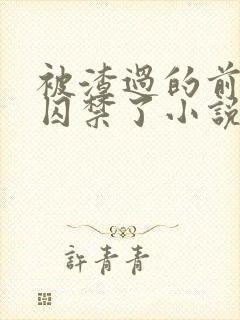 被渣過的前
囚禁了小說
許青青